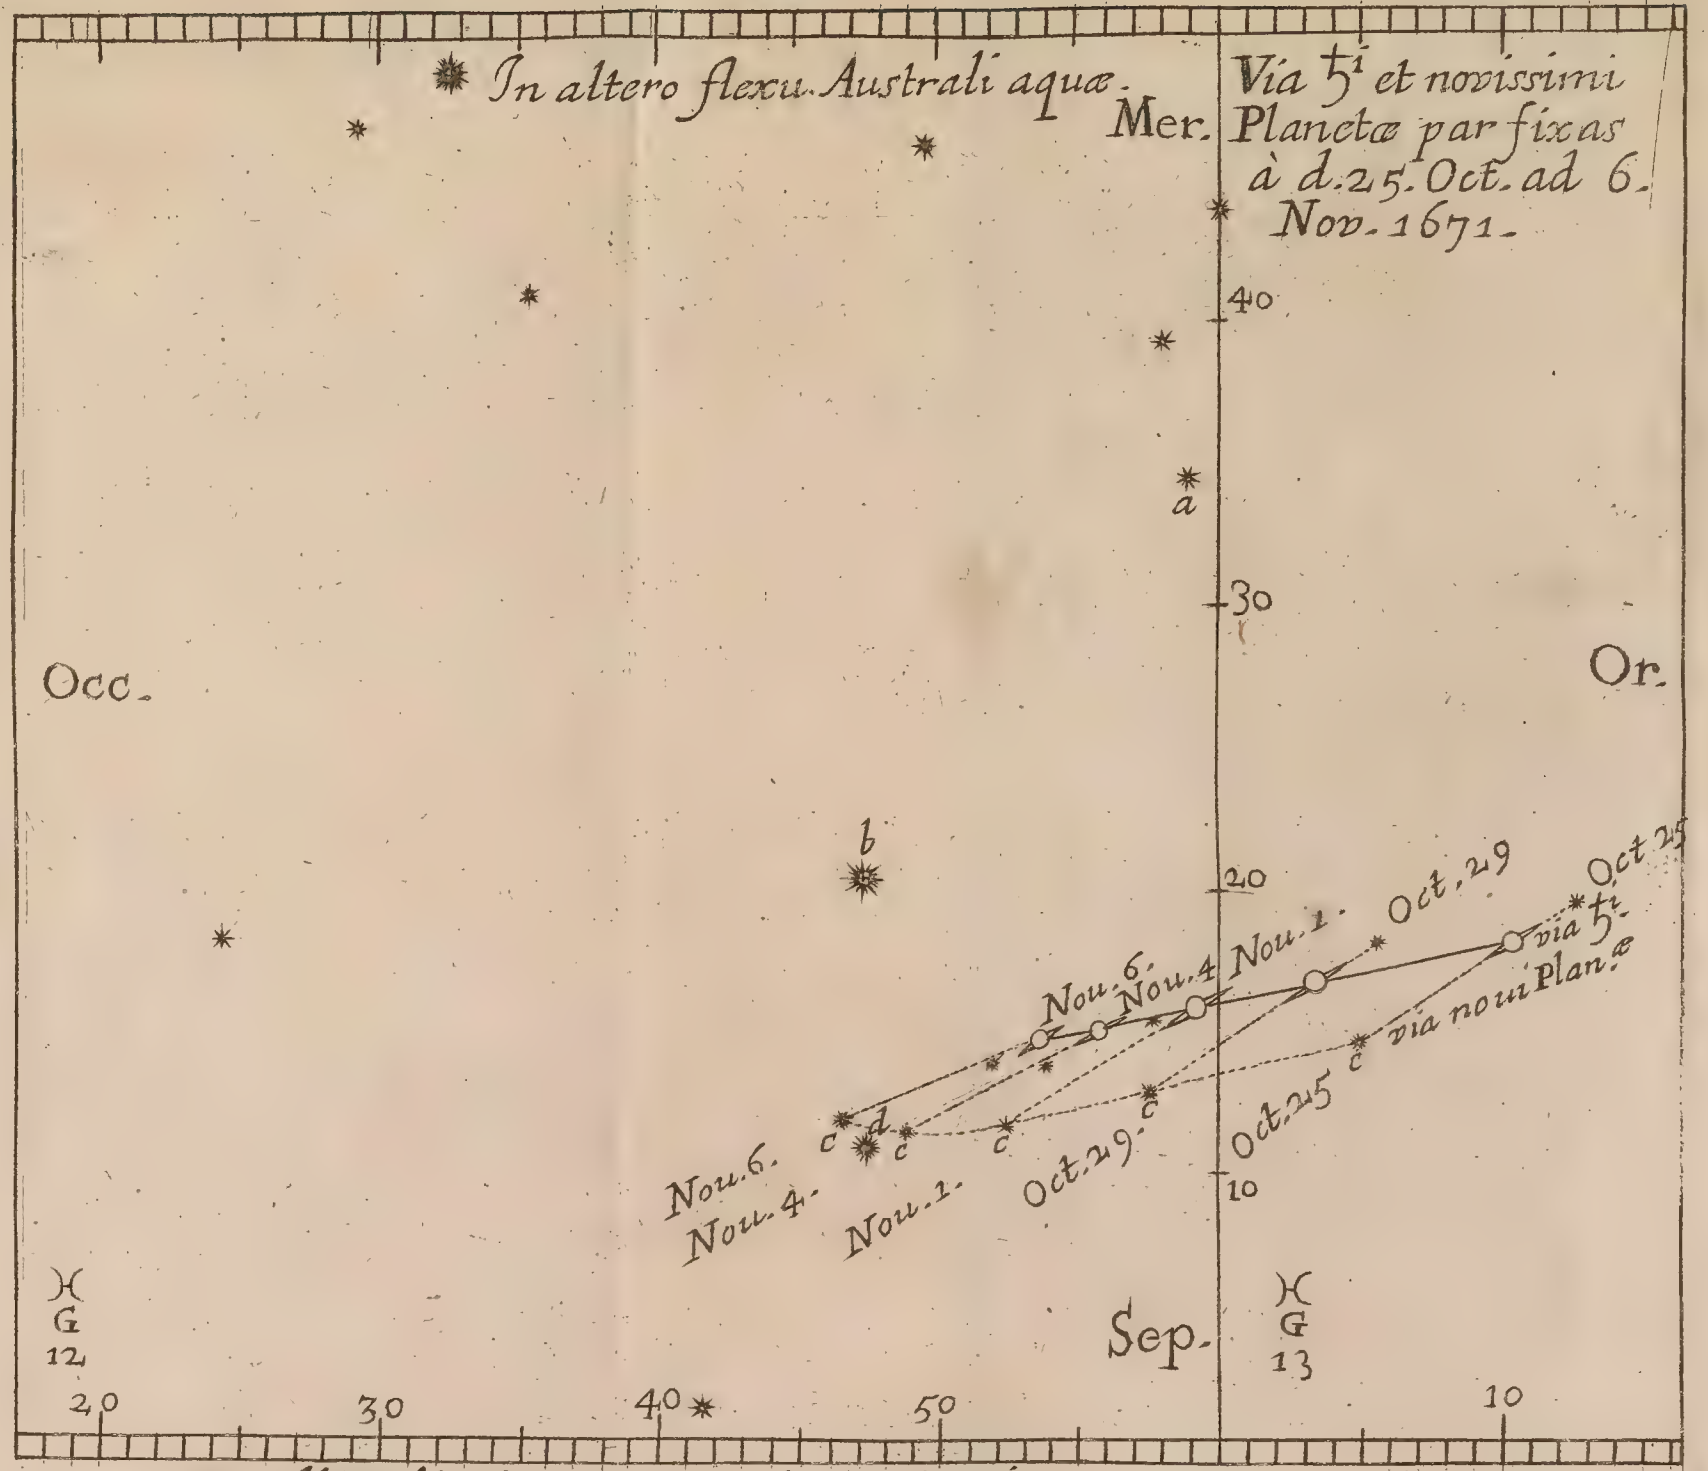 In altero flexu Australi aquæ.
Mer.
Via ♄i et novissimi
Planetæ par fixas
à d.25. Oct. ad 6.
Nov. 1671.
40
a
30
Occ.
Or.
b
20
Oct. 29
Oct 25
Nou. 6.
Nou. 4
Nou. 1.
via ♄i.
via noui Plan.æ
c
d
c
c
c
c
Nou. 6.
Nou. 4.
Nou. 1.
Oct. 29.
Oct. 25
10
♓
G
12
Sep.
♓
G
13
20
30
40
50
10